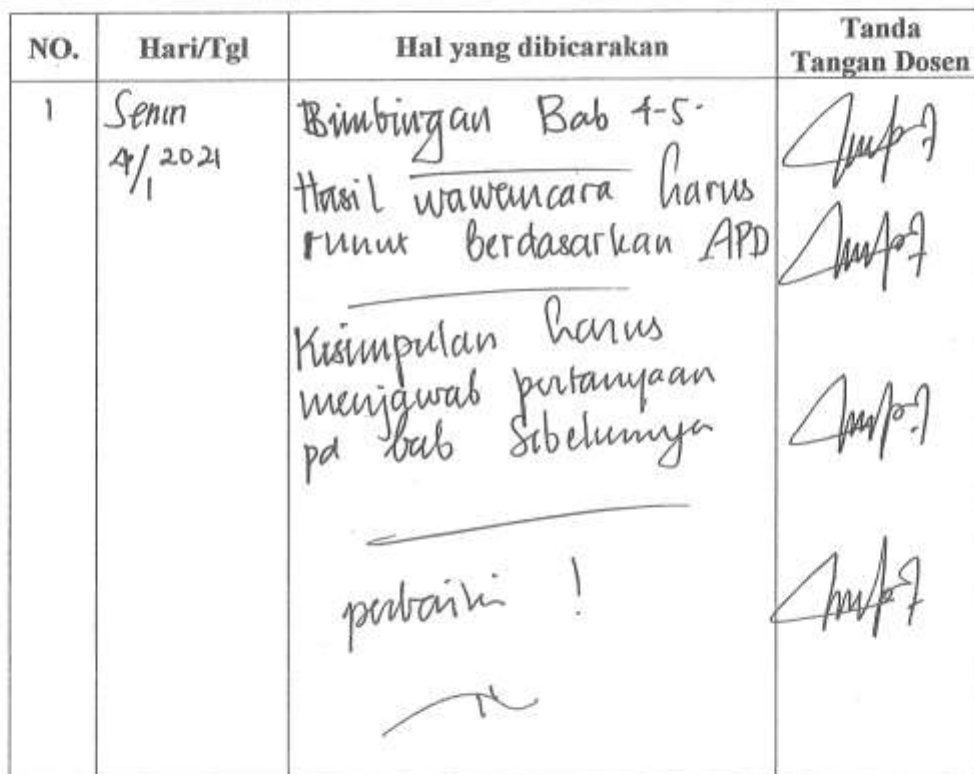 NO.
Hari/Tgl
Hal yang dibicarakan
Tanda
Tangan Dosen
1
Senin
4/1 2021
Bimbingan Bab 4-5.
Hasil wawancara harus
runut berdasarkan APD
Kesimpulan harus
menjawab pertanyaan
pd bab sebelumnya
perbaiki !